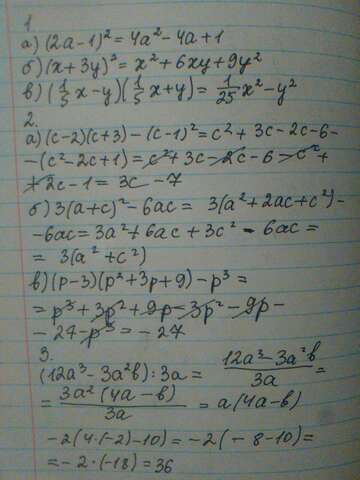 1.
а) (2a-1)² = 4a² - 4a + 1
б) (x + 3y)² = x² + 6xy + 9y²
в) (1/5 x - y)(1/5 x + y) = 1/25 x² - y²
2.
а) (c-2)(c+3) - (c-1)² = c² + 3c - 2c - 6 -
- (c² - 2c + 1) = c² + 3c - 2c - 6 - c² +
+ 2c - 1 = 3c - 7
б) 3(a+c)² - 6ac = 3(a² + 2ac + c²) -
- 6ac = 3a² + 6ac + 3c² - 6ac =
= 3(a² + c²)
в) (p-3)(p² + 3p + 9) - p³ =
= p³ + 3p² + 9p - 3p² - 9p -
- 27 - p³ = - 27
3.
(12a³ - 3a²b) : 3a = (12a³ - 3a²b)/3a =
= 3a²(4a - b)/3a = a(4a - b)
-2(4·(-2) - 10) = -2(-8 - 10) =
= -2·(-18) = 36